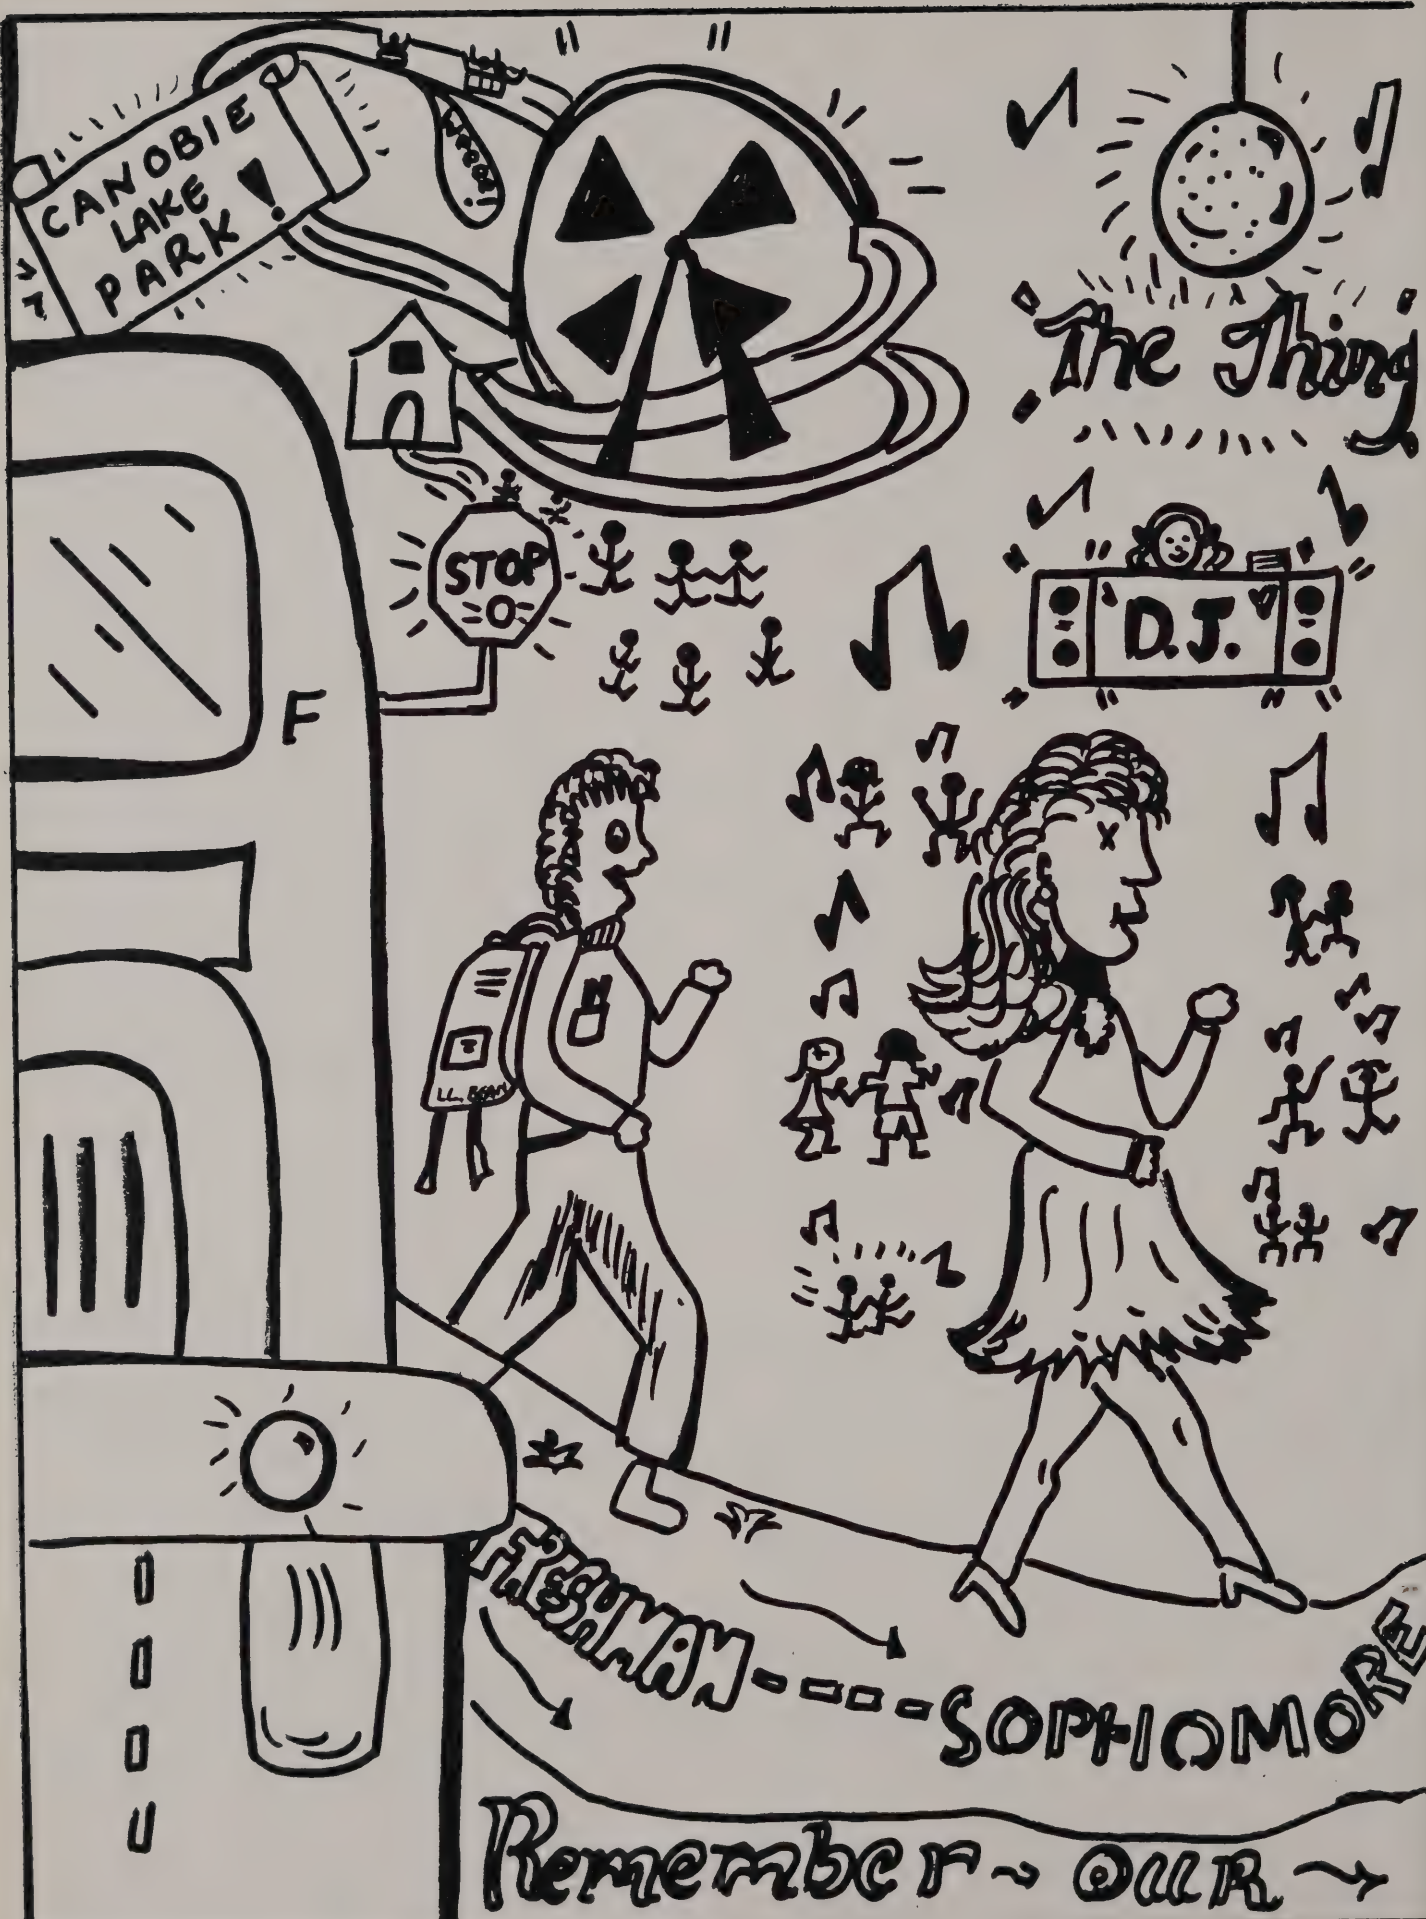 CANOBIE
LAKE
PARK!
Weeee!
The Thing
STOP
D.J.
F
L.L. BEAN
FRESHMAN
SOPHOMORE
Remember ~ our